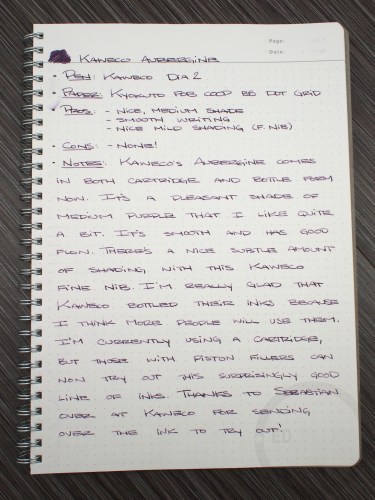 Page:
Date:
Kaweco Aubergine
• Pen: Kaweco Dia 2
• Paper: Kyokuto FOB COOP B5 Dot Grid
• Pros: - Nice, medium shade
- Smooth writing
- Nice mild shading (F. nib)
• Cons: - None!
• Notes: Kaweco's Aubergine comes
in both cartridge and bottle form
now. It's a pleasant shade of
medium purple that I like quite
a bit. It's smooth and has good
flow. There's a nice subtle amount
of shading with this Kaweco
fine nib. I'm really glad that
Kaweco bottled their inks because
I think more people will use them.
I'm currently using a cartridge,
but those with piston fillers can
now try out this surprisingly good
line of inks. Thanks to Sebastian
over at Kaweco for sending
over the ink to try out!